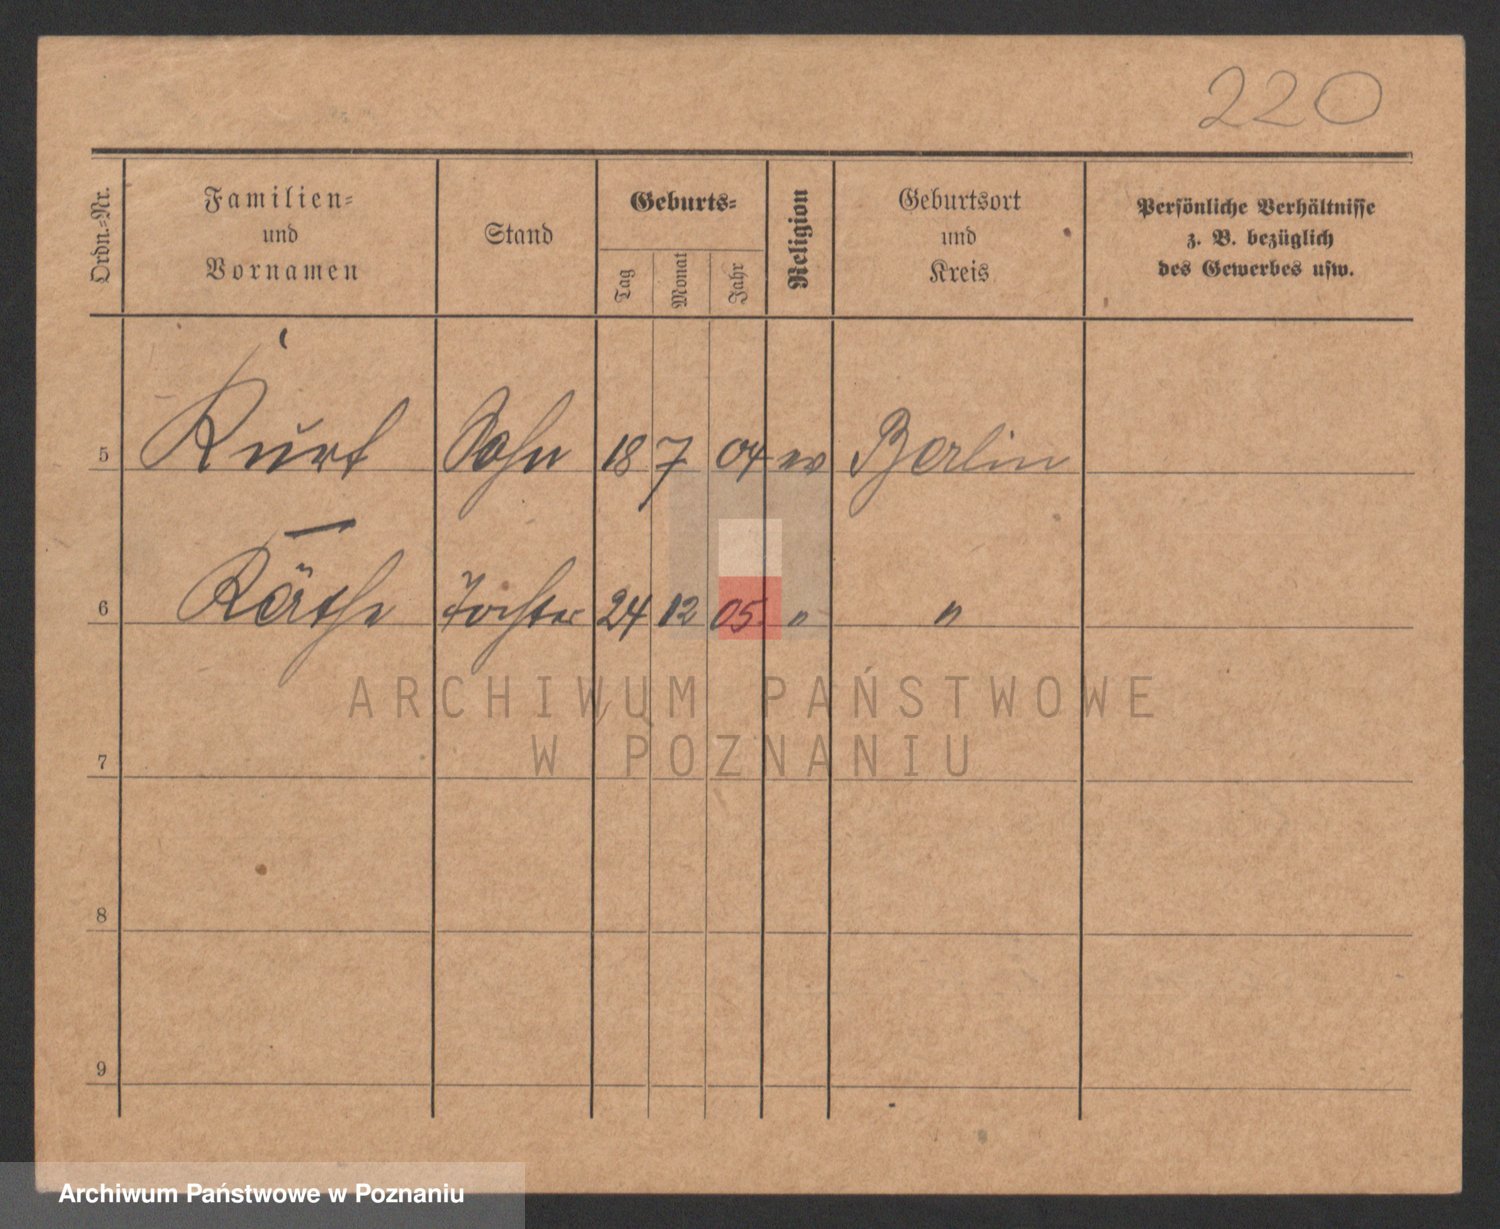 220
Ordn.-Nr. Familien- und Vornamen Stand Geburts- Tag Monat Jahr Religion Geburtsort und Kreis Persönliche Verhältnisse z. B. bezüglich des Gewerbes usw.
5 Kurt Sohn 18 7 04 ev Berlin
6 Käthe Tochter 24 12 05. " "
ARCHIWUM PAŃSTWOWE
W POZNANIU
7
8
9
Archiwum Państwowe w Poznaniu